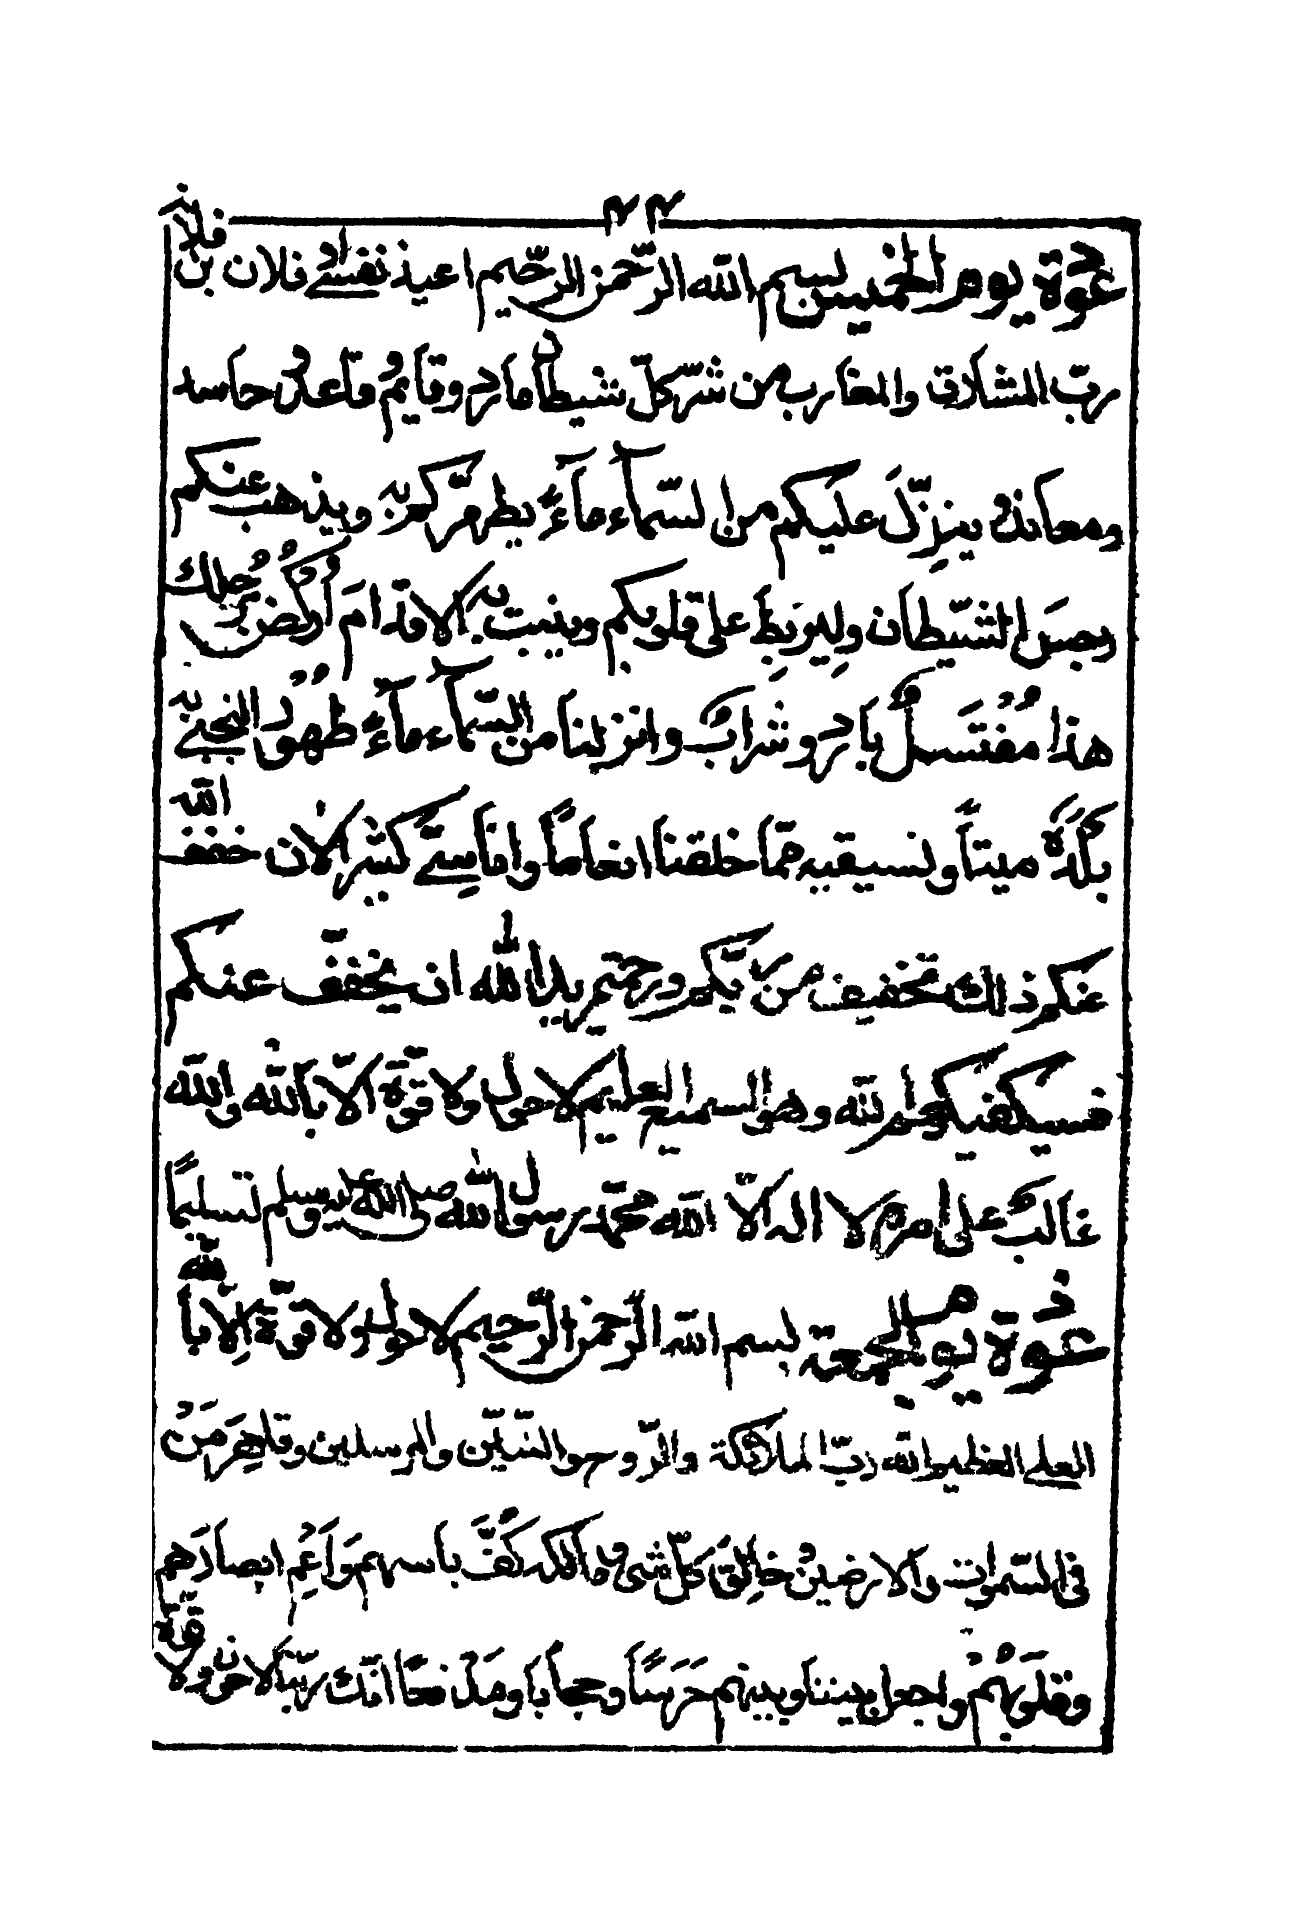 ٢٤
عوذة يوم الخميس بسم الله الرّحمن الرّحيم اعيذ نفسے فلان بن فلان
ربّ المشارق والمغارب من شرّ كلّ شيطان مارد وقايم وقاعد وحاسد
ومعاند وينزّل عليكم من السّمآء مآءً ليطهّركم به ويذهب عنكم
رجس الشّيطان وليربط على قلوبكم ويثبت به الاقدام اركض برجلك
هذا مغتسل بارد وشراب وانزلنا من السّمآء مآءً طهورا لنحيے به
بلدة ميتاً ونسقيه ممّا خلقنا انعاماً واناسےّ كثيرا الان خفف الله
عنكم ذلك تخفيف من ربّكم ورحمة يريد الله ان يخفّف عنكم
فسيكفيكهم الله وهو السميع العليم لا حول ولا قوّة الّا بالله والله
غالب على امره لا اله الّا الله محمّد رسول الله صلى الله عليه وسلم تسليمًا
عوذة يوم الجمعة بسم الله الرّحمن الرّحيم لا حول ولا قوّة الّا بالله
العلے العظيم اللهم ربّ الملائكة والرّوح والنّبيّين والمرسلين وقاهر من
فى السّموات والارضين خالق كلّ شئ ومالكه كفّ باسهم واعم ابصارهم
وقلوبهم واجعل بيننا وبينهم حرساً وحجابا ومدفعًا انّك ربّنا لا حول ولا قوّة